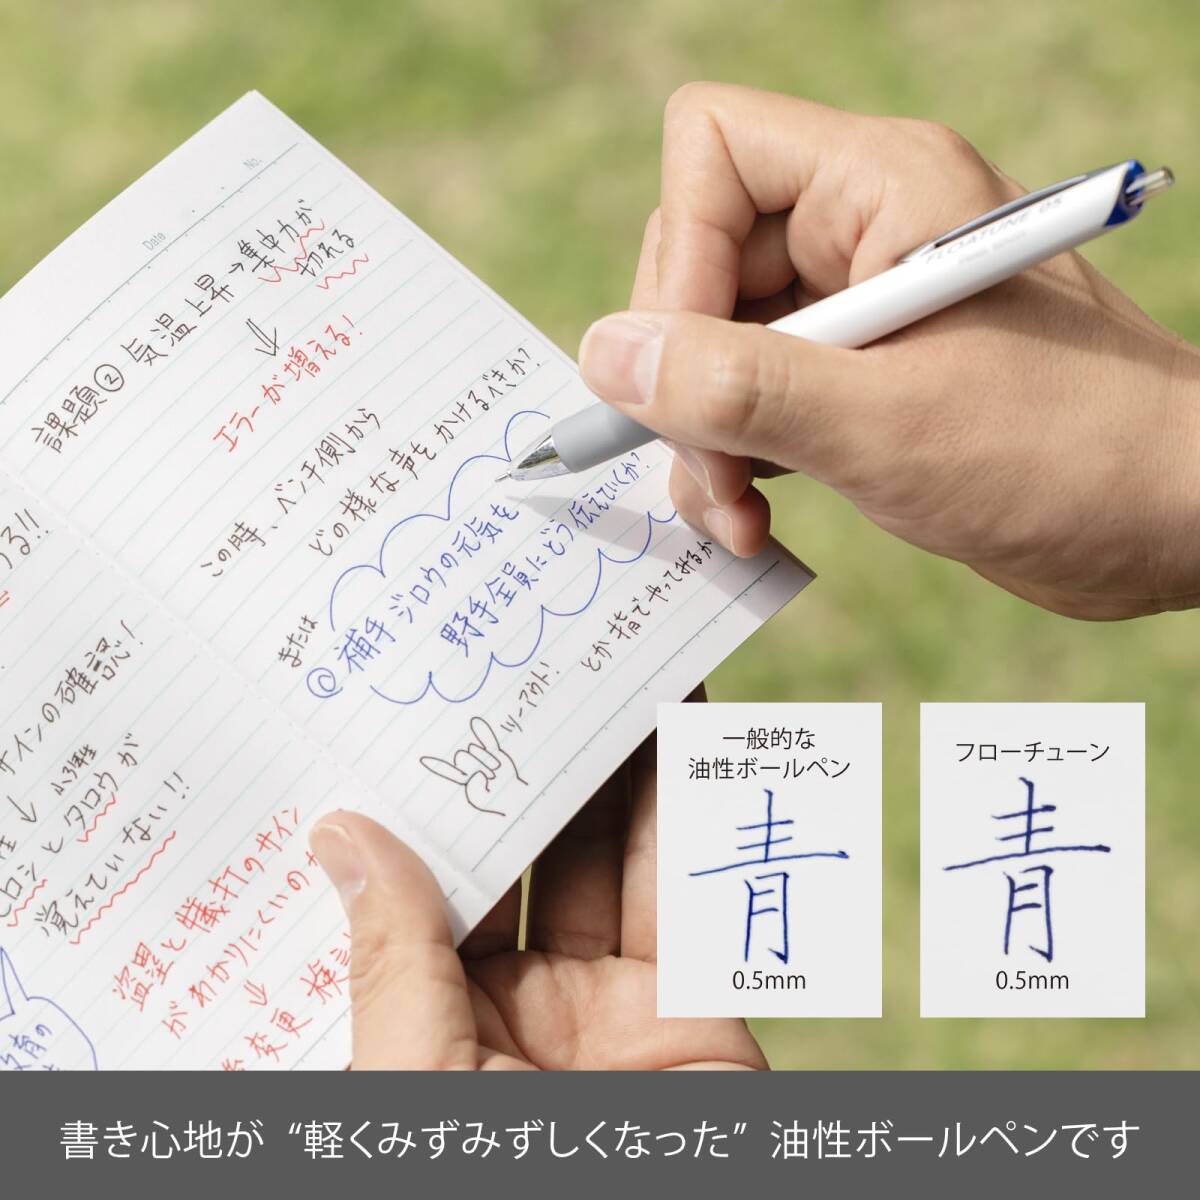 No.
Date
課題② 気温上昇→集中力が
切れる
エラーが増える!
この時、ベンチ側から
どの様な声をかけるべきか?
または
◎捕手ジロウの元気を
野手全員にどう伝えていくか?
ツーアウト!
とか指でやってみるか
る!!
サインの確認!
ヒロシとタロウが
覚えていない!!
盗塁と犠打のサイン
がわかりにくいのか
変更 検討
FLOATUNE 05
一般的な
油性ボールペン
青
0.5mm
フローチューン
青
0.5mm
書き心地が“軽くみずみずしくなった”油性ボールペンです